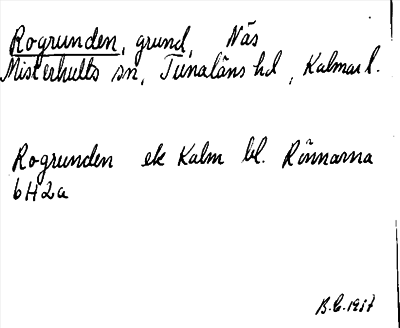 Rogrunden, grund, Näs
Misterhults sn, Tunaläns hd, Kalmar l.
Rogrunden ek Kalm bl. Rönnarna
6H2a
B.C.1957